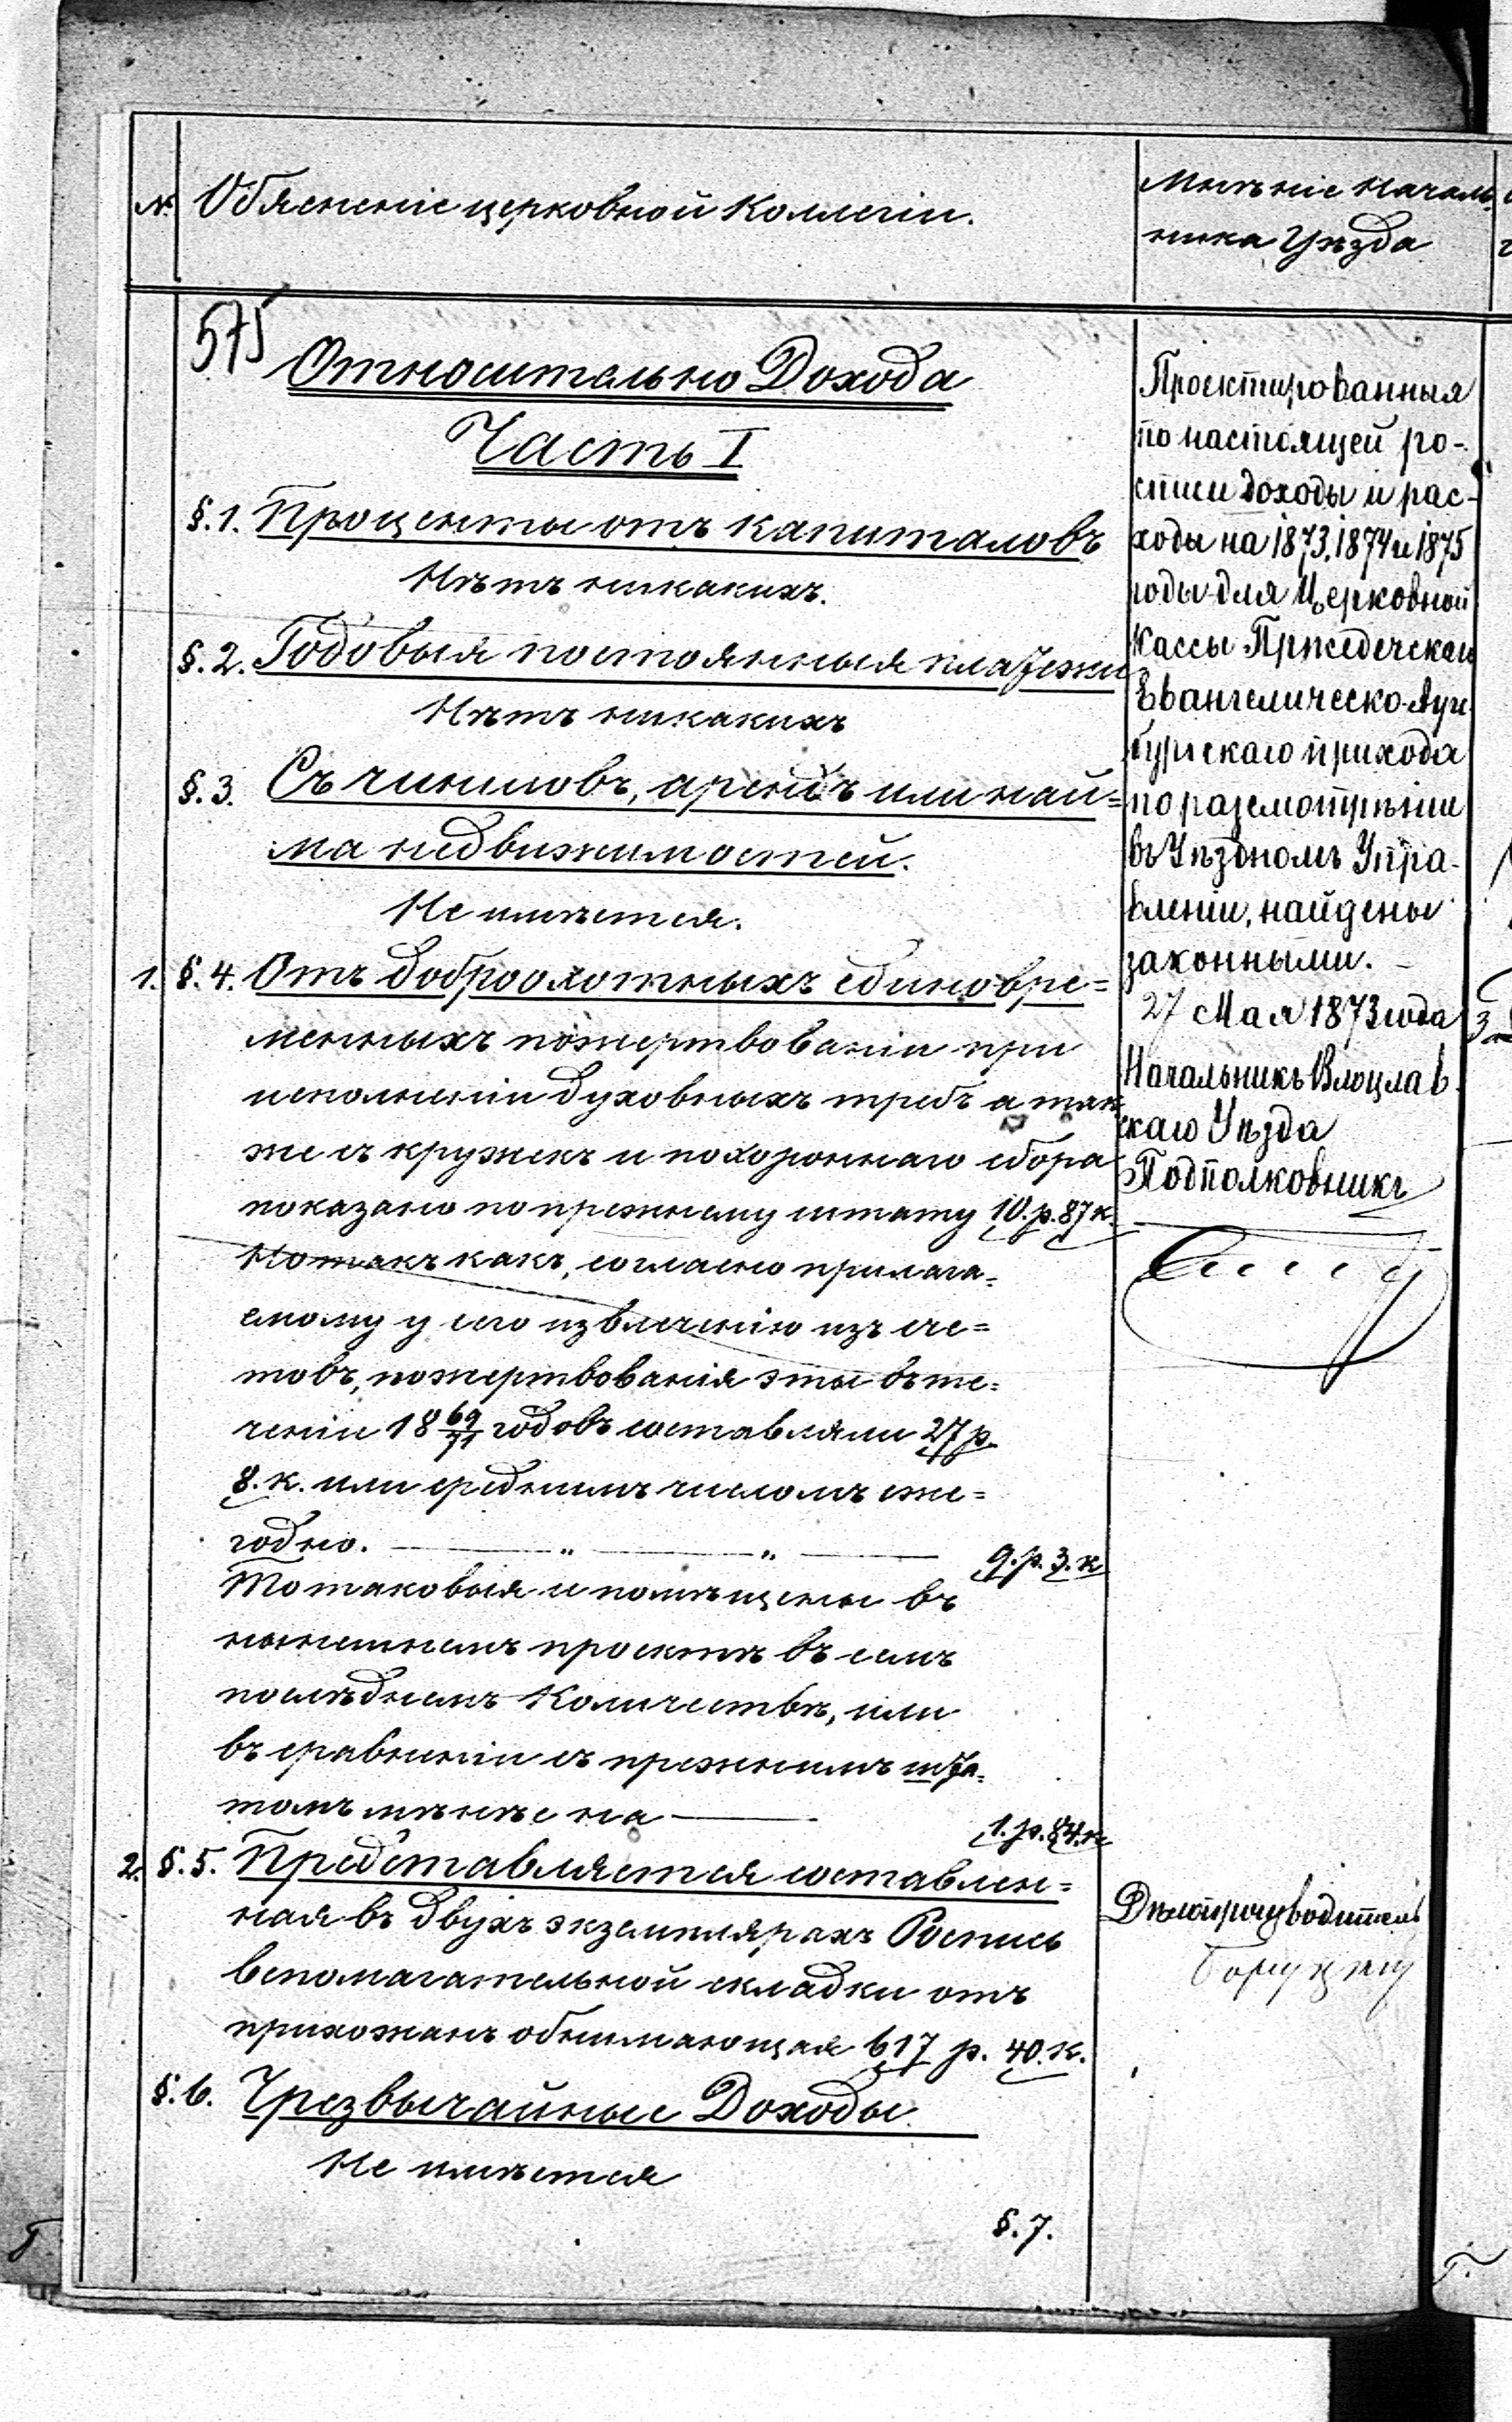 №
Обясненіе церковной Коллегіи.
Мнѣніе Началь
ника Уѣзда
575
Относительно Дохода
Часть I
§.1. Проценты отъ капиталовъ
Нѣтъ никакихъ.
§.2. Годовыя постоянныя платежи
Нѣтъ никакихъ
§.3. Съ чиншовъ, арендъ или най=
ма недвижимостей.
Не имѣется.
1. §.4. Отъ доброохотныхъ единовре=
менныхъ пожертвованіи при
исполненіи духовныхъ требъ а так
же съ кружекъ и похороннаго сбора
показано по прежнему штату 10.р.87к.
Но такъ какъ, согласно прилага=
емому у сего извлеченію изъ сче=
товъ, пожертвованія эты въ те=
ченіи 18 69/71 годовъ составляли 27р.
8.к. или среднимъ числомъ еже=
годно. — " — " — 9.р.3.к
То таковыя и помѣщены въ
нынешнемъ проектѣ въ семъ
послѣднемъ Количествѣ, или
въ сравненіи съ прежнимъ шта=
томъ мѣнѣе на — 1.р.84.к
2. §.5. Представляется составлен=
ная въ двухъ экземплярахъ Роспись
вспомагательной складки отъ
прихожанъ обнимающая 617 р. 40.к.
§.6. Чрезвычайные Доходы.
Не имѣется
§.7.
Проектированныя
по настоящей ро-
списи доходы и рас-
ходы на 1873, 1874 и 1875
годы для Церковной
Кассы Пржедечскаго
Евангелическо-Ауг
бургскаго прихода
по разсмотрѣніи
въ Уѣздномъ Упра-
вленіи, найдены
законными.
27 Мая 1873 года
Начальникъ Влоцлав-
скаго Уѣзда
Подполковникъ
Дѣлопроизводитель